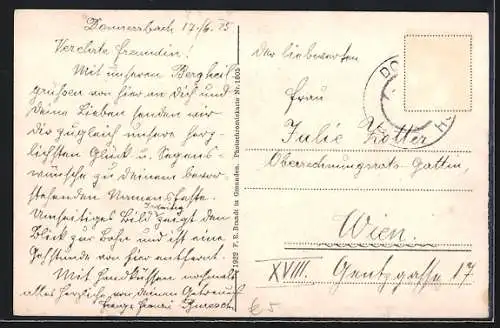 Donnersbach 17./6. 25
Verehrte Freundin!
Mit unseren Bergheil
grüssen von hier an Dich und
Deine Lieben senden wir
Dir zugleich unsere herz
lichsten Glück u. Segens
wünsche zu Deinem bevor
stehenden Namensfeste.
Umseitiges Bild zeigt den
Blick zur Höhe und ist eine
Gehstunde von hier entfernt.
Mit Handküssen nochmals
alles herzliche von Deinen Getreuen
1922 F. E. Brandt in Gmunden. Photochromiekarte Nr.
Der liebwerten
Frau
Julie Kotter
Oberrechnungsrats-Gattin,
Wien.
XVIII. Gentzgasse 17